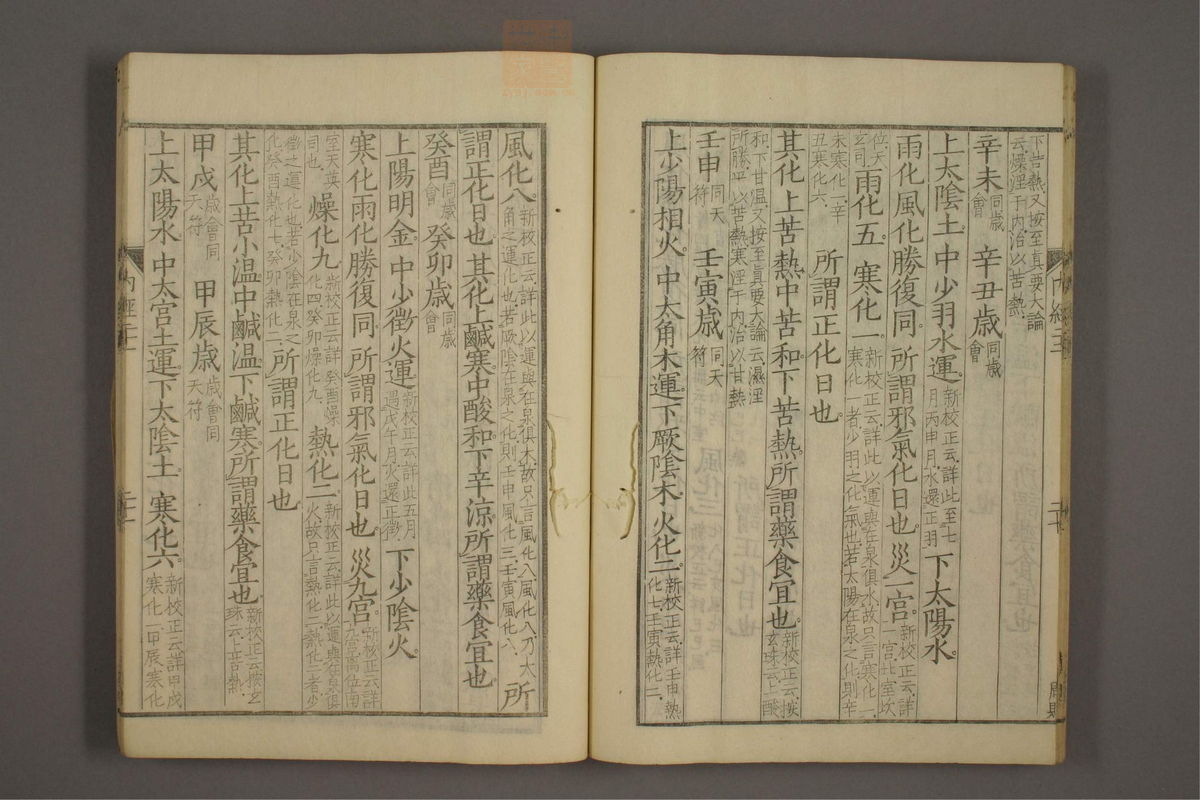 下言熱又按至眞要大論
云燥淫于内治以苦熱
辛未同歲會 辛丑歲同歲會
上太陰土 中少羽水運新校正云詳此至七月丙申月水還正羽 下太陽水
雨化風化勝復同 所謂邪氣化日也 災一宫新校正云詳一宫北室坎
位天玄司 雨化五 寒化一新校正云詳此以運與在泉俱水故只言寒化一寒化一者少羽之化氣也若太陽在泉之化則辛
未寒化一辛丑寒化六 所謂正化日也
其化上苦熱中苦和下苦熱所謂藥食宜也新校正云按玄珠云上酸
和下甘温又按至眞要大論云濕淫所勝平以苦熱寒淫于内治以甘熱
壬申同天符 壬寅歲同天符
上少陽相火 中太角木運 下厥陰木 火化二新校正云詳壬申熱化七壬寅熱化二
風化八新校正云詳此以運與在泉俱木故只言風化八風化八乃太角之運化也若厥陰在泉之化則壬申風化三壬寅風化八 所
謂正化日也 其化上鹹寒中酸和下辛涼所謂藥食宜也
癸酉同歲會 癸卯歲同歲會
上陽明金 中少徵火運新校正云詳此五月遇戊午月火還正徵 下少陰火
寒化雨化勝復同 所謂邪氣化日也 災九宫新校正云詳九宫离位南
室天英司也 燥化九新校正云詳癸酉燥化四癸卯燥化九 熱化二新校正云詳此以運與在泉俱火故只言熱化二熱化二者少
徵之運化也若少陰在泉之化癸酉熱化七癸卯熱化二 所謂正化日也
其化上苦小温中鹹温下鹹寒所謂藥食宜也新校正云按玄珠云上苦熱
甲戌歲會同天符 甲辰歲歲會同天符
上太陽水 中太宫土運 下太陰土 寒化六新校正云詳甲戌寒化一甲辰寒化
内經三
二十